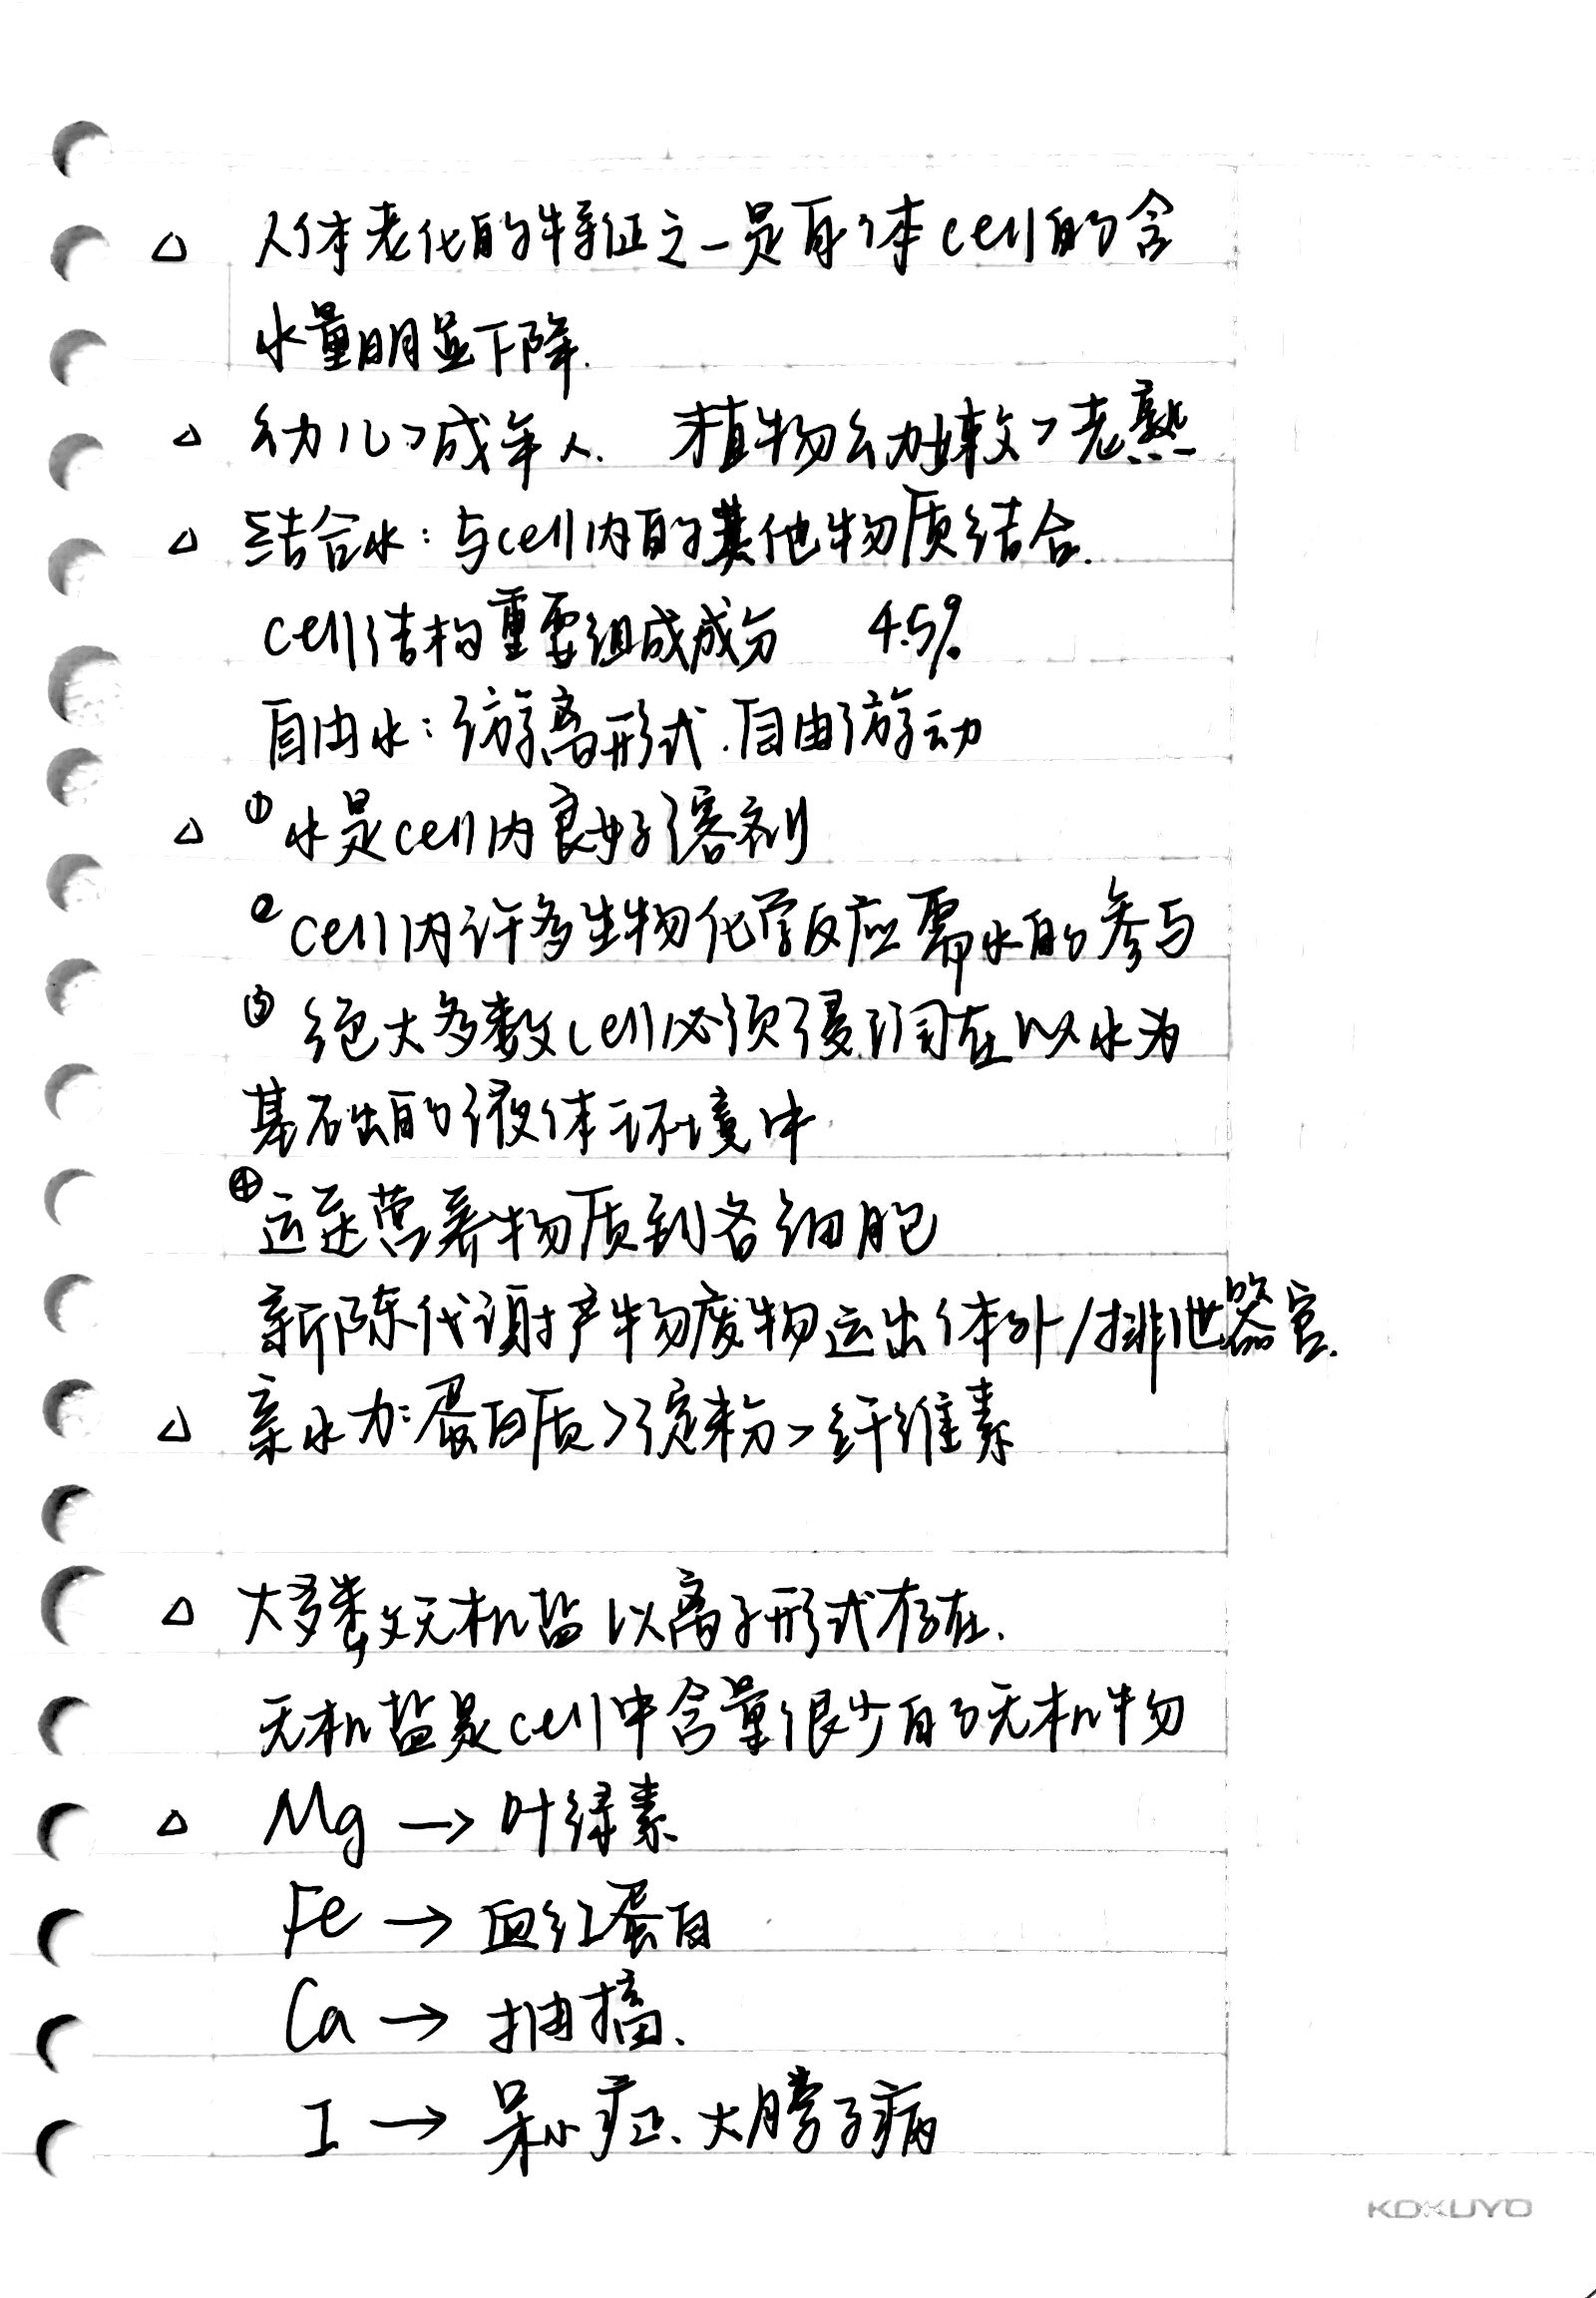 △ 人体老化的特征之一是身体cell的含
水量明显下降.
△ 幼儿>成年人. 植物幼嫩>老熟
△ 结合水:与cell内的其他物质结合.
cell结构重要组成成分 4.5%
自由水:游离形式.自由游动
△ ①水是cell内良好溶剂
②cell内许多生物化学反应需水的参与
③ 绝大多数cell必须浸润在以水为
基础的液体环境中.
④运送营养物质到各细胞
新陈代谢产物废物运出体外/排泄器官.
△ 亲水力:蛋白质>淀粉>纤维素
△ 大多数无机盐以离子形式存在.
无机盐是cell中含量很少的无机物
△ Mg → 叶绿素
Fe → 血红蛋白
Ca → 抽搐、
I → 呆小症、大脖子病
KOKUYO